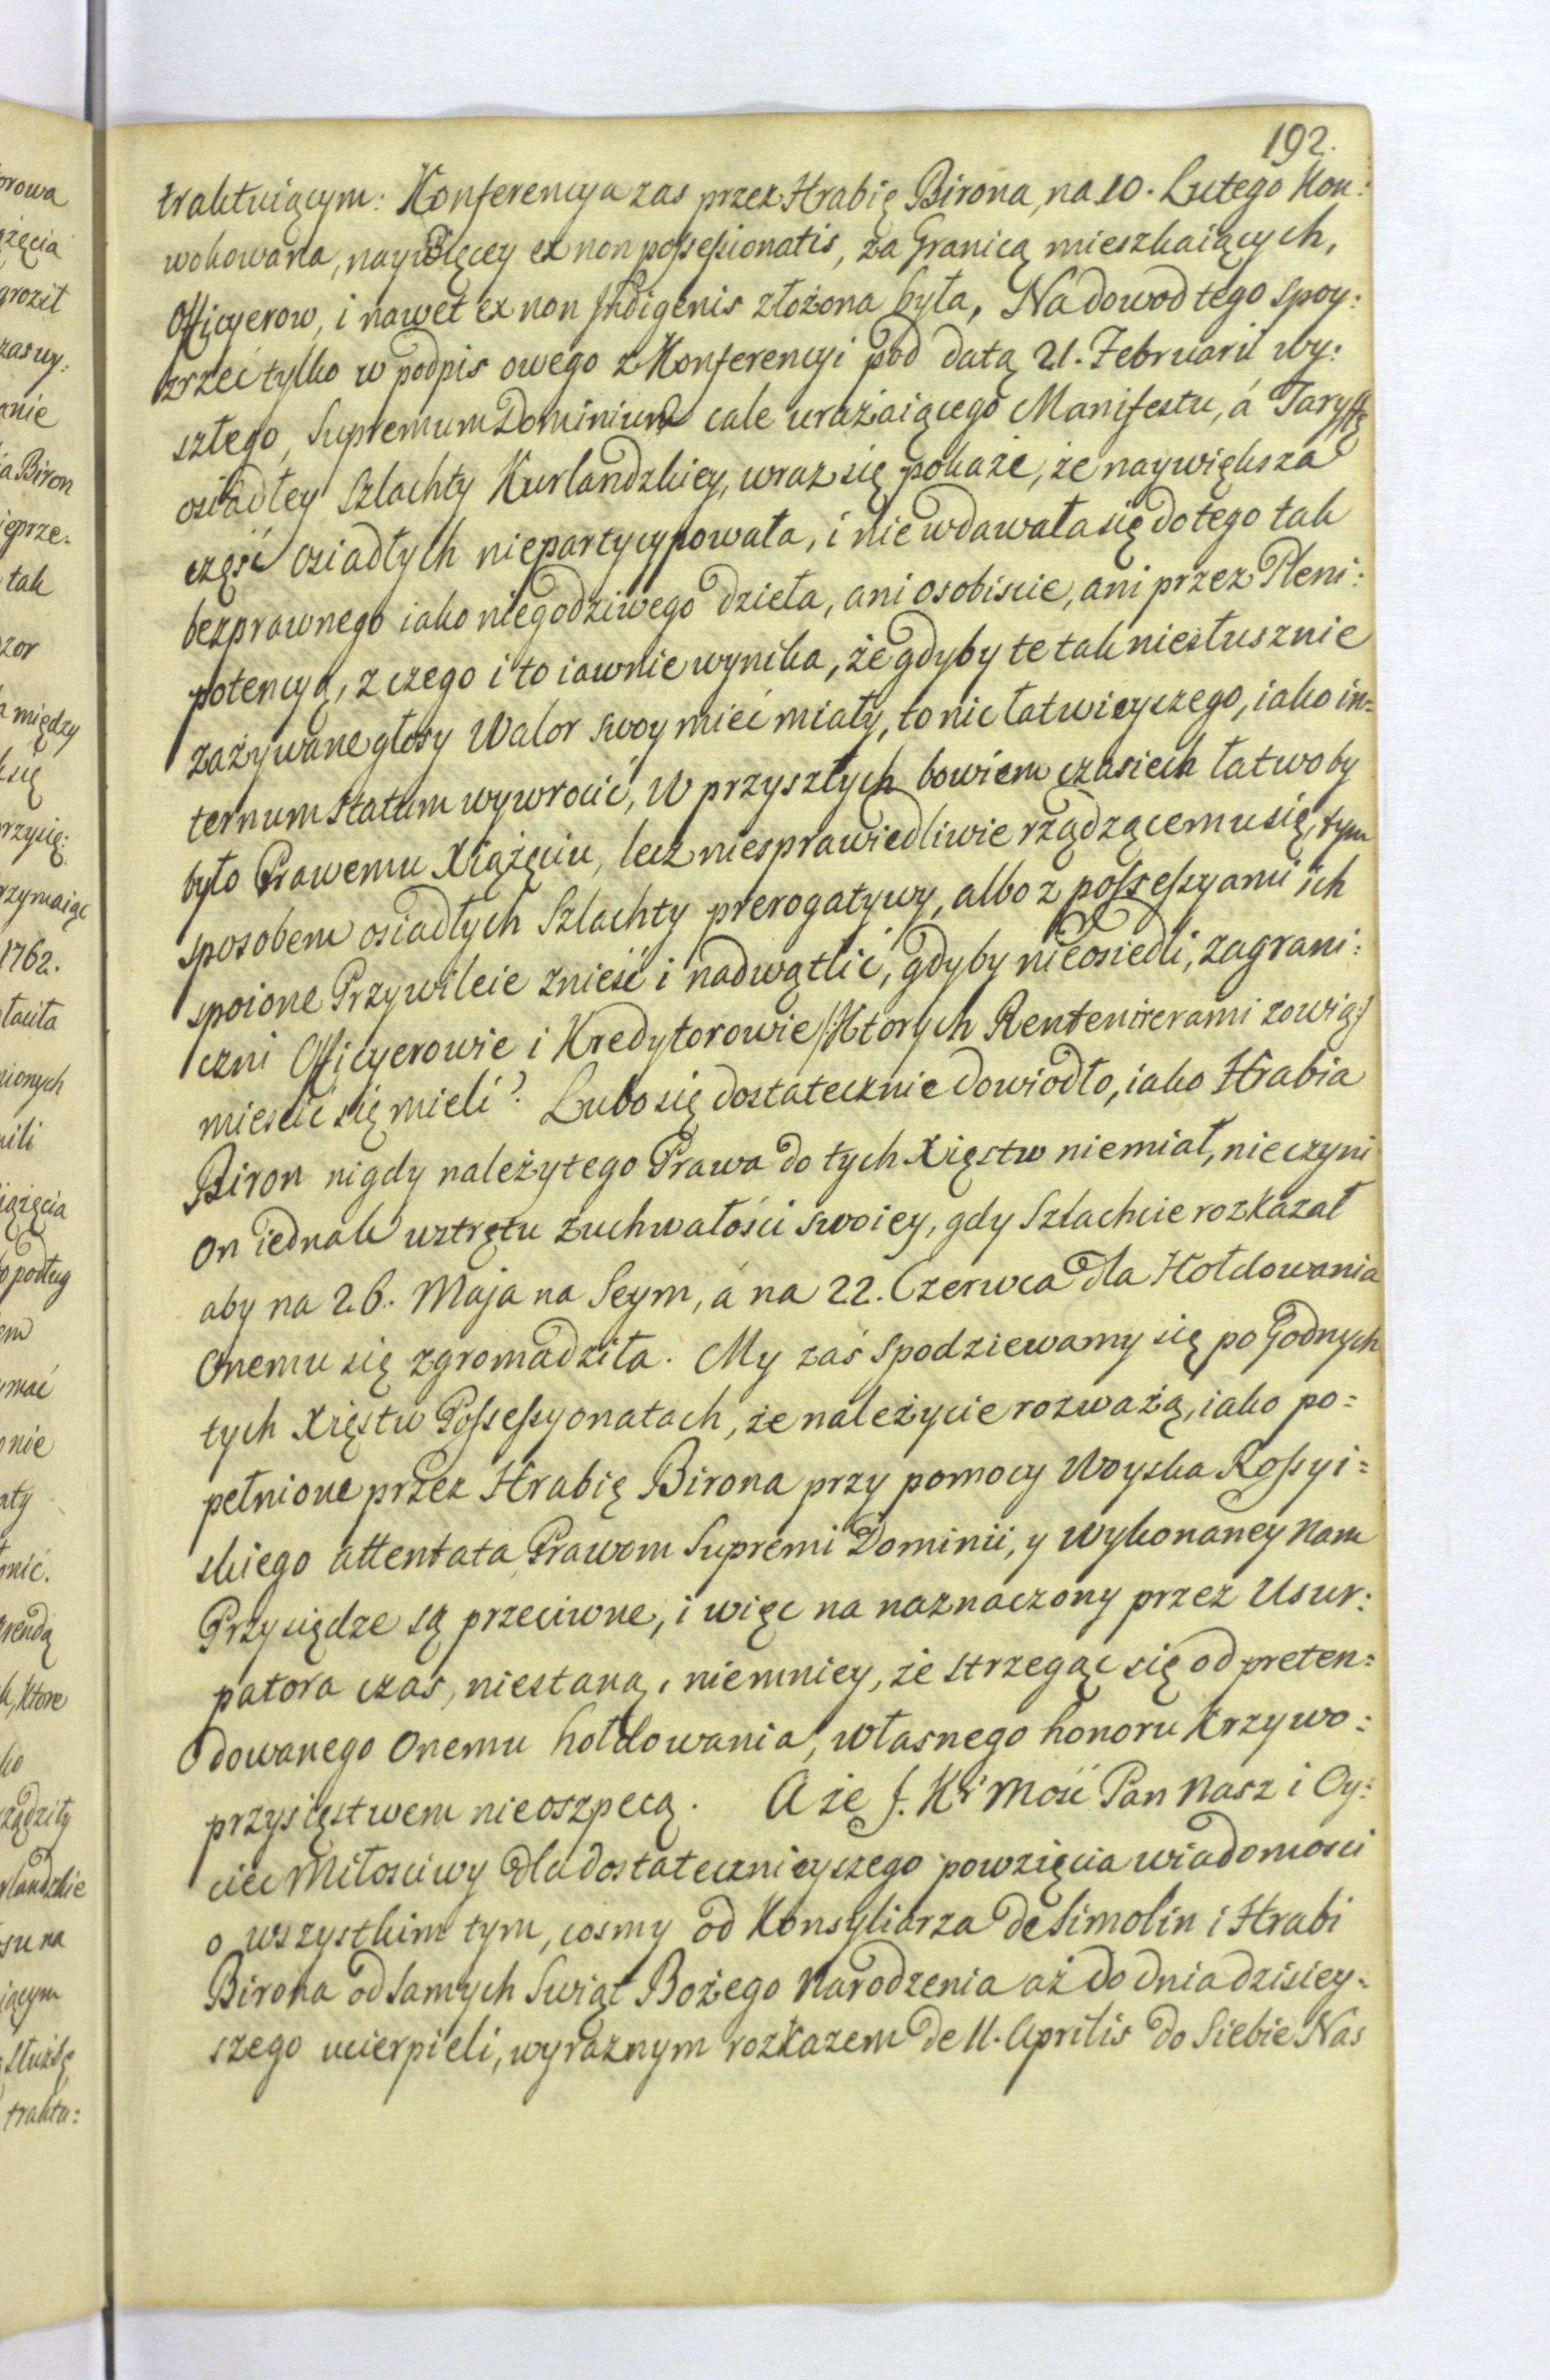 192.
traktuiącym: Konferencya zas przez Hrabię Birona, na 10. Lutego Kon:
wokowana, naywięcey ex non possessionatis, za Granicą mieszkaiących,
Officyerow, i nawet ex non Indigenis złożona była, Na dowod tego spoy:
zrzeć tylko w podpis owego z Konferencyi pod datą 21. Februarii wy:
szłego, Supremum Dominium cale urażaiącego Manifestu, á Taryffę
osiadłey Szlachty Kurlandzkiey, wraz się pokaże, że naywiększa
część osiadłych niepartycypowała, i nie wdawała się do tego tak
bezprawnego iako niegodziwego dzieła, ani osobiscie, ani przez Pleni:
potencyą, z czego i to iawnie wynika, że gdyby te tak niesłusznie
zażywane głosy Walor swoy mieć miały, to nic łatwieyszego, iako in=
ternum Statum wywrocić, W przyszłych bowiem czasiech łatwo by
było Prawemu Xiążęciu, lecz niesprawiedliwie rządzącemu się, tym
sposobem osiadłych Szlachty prerogatywy, albo z possessyami ich
spoione Przywileie znieść i nadwątlić, gdyby nieosiedli, zagrani:
czni Officyerowie i Kredytorowie /:Ktorych Rentenirerami zowią:/
miescić się mieli? Lubo się dostatecznie dowiodło, iako Hrabia
Biron nigdy należytego Prawa do tych Xięstw niemiał, nieczyni
on iednak wztrętu zuchwałości swoiey, gdy Szlachcie rozkazał
aby na 26. Maja na Seym, á na 22. Czerwca dla Hołdowania
onemu się zgromadziła. My zaś spodziewamy się po Godnych
tych Xięstw Possessyonatach, że należycie rozważą, iako po=
pełnione przez Hrabię Birona przy pomocy Woyska Rossyi=
skiego attentata Prawom Supremi Dominii, y wykonaney Nam
Przysiędze są przeciwne, i więc na naznaczony przez Usur:
patora czas, niestaną, niemniey, że strzegąc się od preten=
dowanego onemu hołdowania, własnego honoru Krzywo:
przysięstwem nieoszpecą. A że J. Kr Mość Pan Nasz i Oy:
ciec Miłosciwy dla dostatecznieyszego powzięcia wiadomosci
o wszystkim tym, cosmy od Konsyliarza de Simolin i Hrabi
Birona od samych Swiąt Bożego Narodzenia aż do dnia dzisiey=
szego ucierpieli, wyraznym rozkazem de 11. Aprilis do Siebie Nas